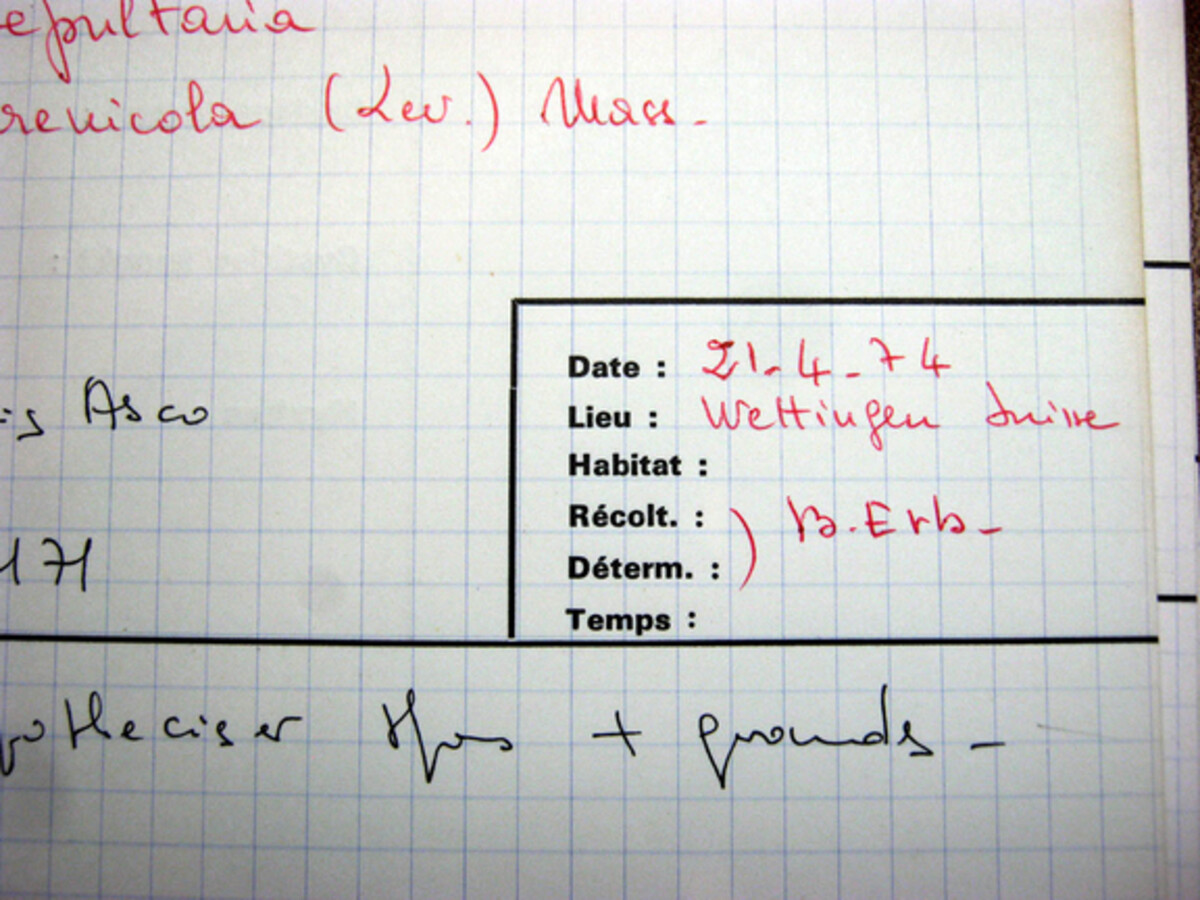 epultaria
renicola (Lev.) Mass.
Date : 21.4.74
Lieu : Wettingen Suisse
is Asco
Habitat :
Récolt. : ) B. Erb -
Déterm. :
171
Temps :
potheciser + grands -